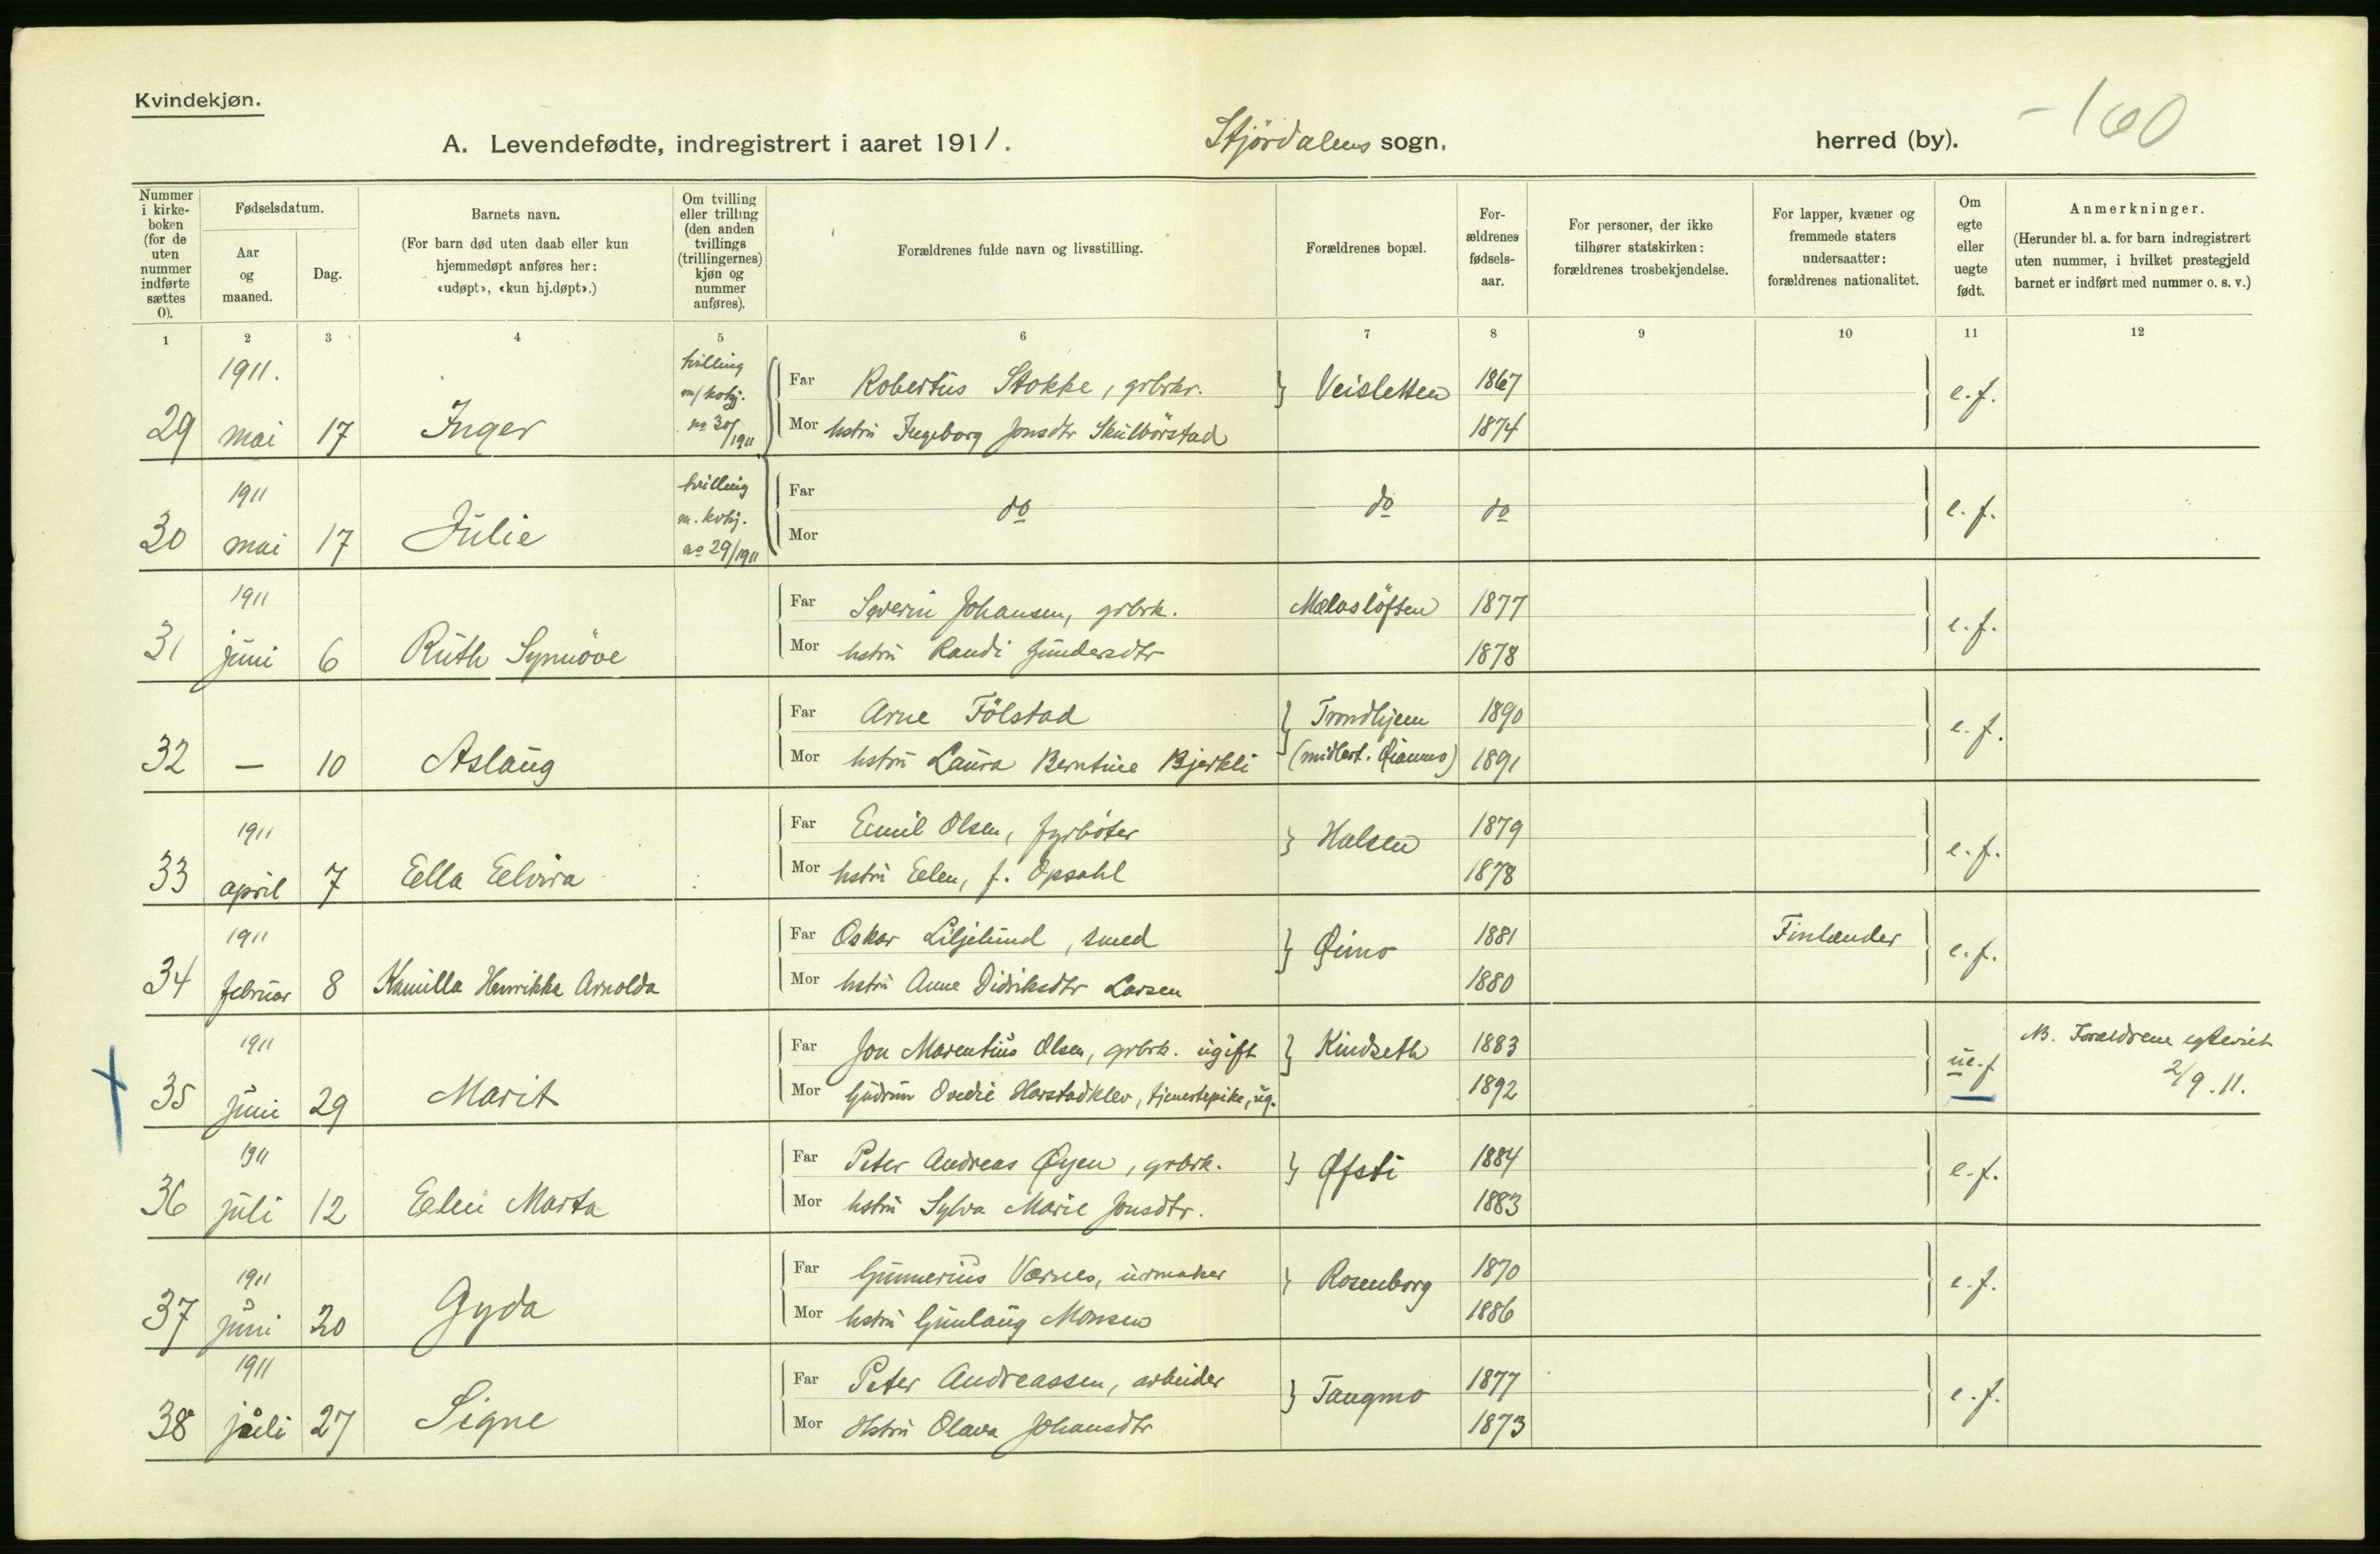 Kvindekjøn.
-160
A. Levendefødte, indregistrert i aaret 1911. Stjördalens sogn. herred (by).
Nummer i kirkeboken (for de uten nummer indførte sættes 0).
Fødselsdatum.
Aar og maaned.
Dag.
Barnets navn.
(For barn død uten daab eller kun hjemmedøpt anføres her: «udøpt», «kun hj.døpt».)
Om tvilling eller trilling (den anden tvillings (trillingernes) kjøn og nummer anføres).
Forældrenes fulde navn og livsstilling.
Forældrenes bopæl.
Forældrenes fødselsaar.
For personer, der ikke tilhører statskirken: forældrenes trosbekjendelse.
For lapper, kvæner og fremmede staters undersaatter: forældrenes nationalitet.
Om egte eller uegte født.
Anmerkninger.
(Herunder bl. a. for barn indregistrert uten nummer, i hvilket prestegjeld barnet er indført med nummer o. s. v.)
1 2 3 4 5 6 7 8 9 10 11 12
1911. tvilling m/kvkj. no 30/1911 Far Robertus Stokke, grbrkr. Veisletten 1867 e. f.
29 mai 17 Inger Mor hstru Ingeborg Jonsdtr Skulbörstad 1874
1911 tvilling m. kvkj. no 29/1911 Far do do do e. f.
30 mai 17 Julie Mor
1911 Far Severin Johansen, grbrk. Mælaslöften 1877 e. f.
31 juni 6 Ruth Synnöve Mor hstru Randi Gundersdtr 1878
Far Arne Fölstad Trondhjem 1890 e. f.
32 — 10 Aslaug Mor hstru Laura Berntine Bjerkli (midlert. Øianmo) 1891
1911 Far Emil Olsen, fyrböter Halsen 1879 e. f.
33 april 7 Ella Elvira Mor hstru Elen, f. Opsahl 1878
1911 Far Oskar Liljelund, smed Øimo 1881 Finlænder e. f.
34 februar 8 Kamilla Henrikka Arnolda Mor hstru Anne Didriksdtr Larsen 1880
1911 Far Jon Marentius Olsen, grbrk. ugift Kindseth 1883 ue. f NB. Forældrene egteviet
35 juni 29 Marit Mor Gudrun Ovedie Harstadklev, tjenestepike, ug. 1892 2/9. 11.
1911 Far Peter Andreas Øyen, grbrk. Øfsti 1884 e. f.
36 juli 12 Elen Marta Mor hstru Sylva Marie Jonsdtr. 1883
1911 Far Gunnerius Værnes, urmaker Rosenborg 1870 e. f.
37 juni 20 Gyda Mor hstru Gunlaug Monsen 1886
1911 Far Peter Andreassen, arbeider Tangmo 1877 e. f.
38 juli 27 Signe Mor Hstru Olava Johansdtr 1873